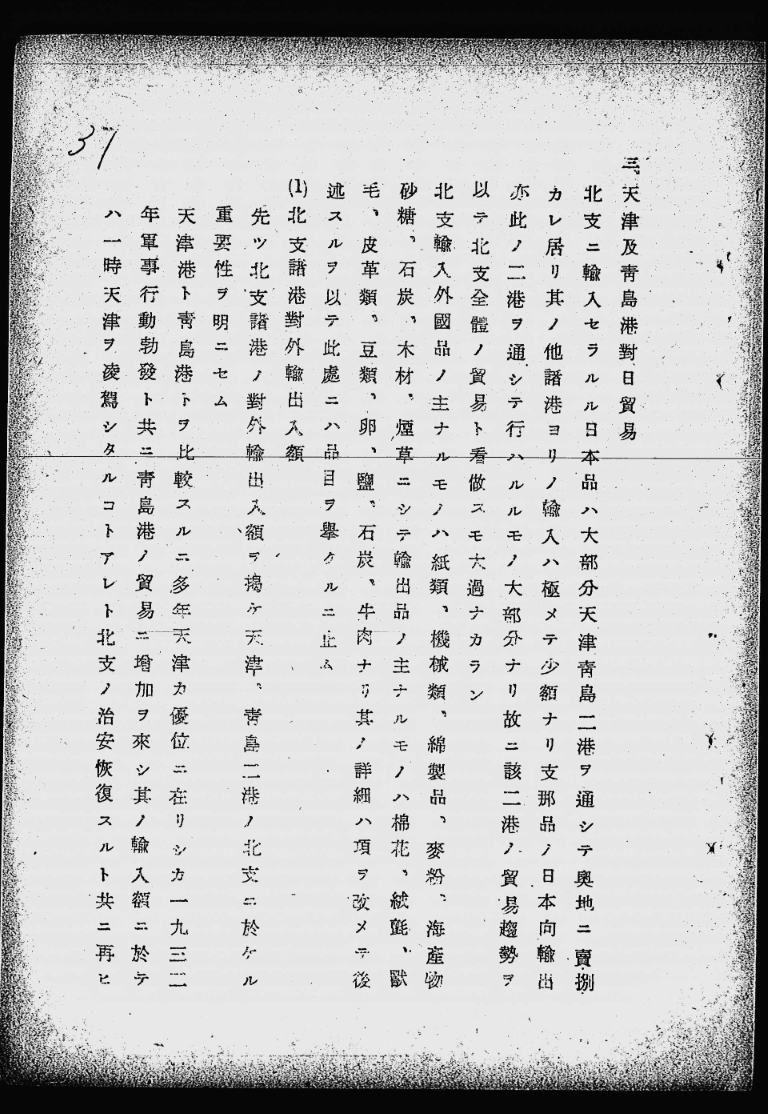 37
三、天津及靑島港對日貿易
北支ニ輸入セラルル日本品ハ大部分天津靑島二港ヲ通シテ奧地ニ賣捌
カレ居リ其ノ他諸港ヨリノ輸入ハ極メテ少額ナリ支那品ノ日本向輸出
亦此ノ二港ヲ通シテ行ハルルモノ大部分ナリ故ニ該二港ノ貿易趨勢ヲ
以テ北支全體ノ貿易ト看做スモ大過ナカラン
北支輸入外國品ノ主ナルモノハ紙類、機械類、綿製品、麥粉、海產物
砂糖、石炭、木材、煙草ニシテ輸出品ノ主ナルモノハ棉花、絨氈、獸
毛、皮革類、豆類、卵、鹽、石炭、牛肉ナリ其ノ詳細ハ項ヲ改メテ後
述スルヲ以テ此處ニハ品目ヲ擧クルニ止ム
(1)北支諸港對外輸出入額
先ツ北支諸港ノ對外輸出入額ヲ揭ケ天津、靑島二港ノ北支ニ於ケル
重要性ヲ明ニセム
天津港ト靑島港トヲ比較スルニ多年天津カ優位ニ在リシカ一九三二
年軍事行動勃發ト共ニ靑島港ノ貿易ニ增加ヲ來シ其ノ輸入額ニ於テ
ハ一時天津ヲ凌駕シタルコトアレト北支ノ治安恢復スルト共ニ再ヒ